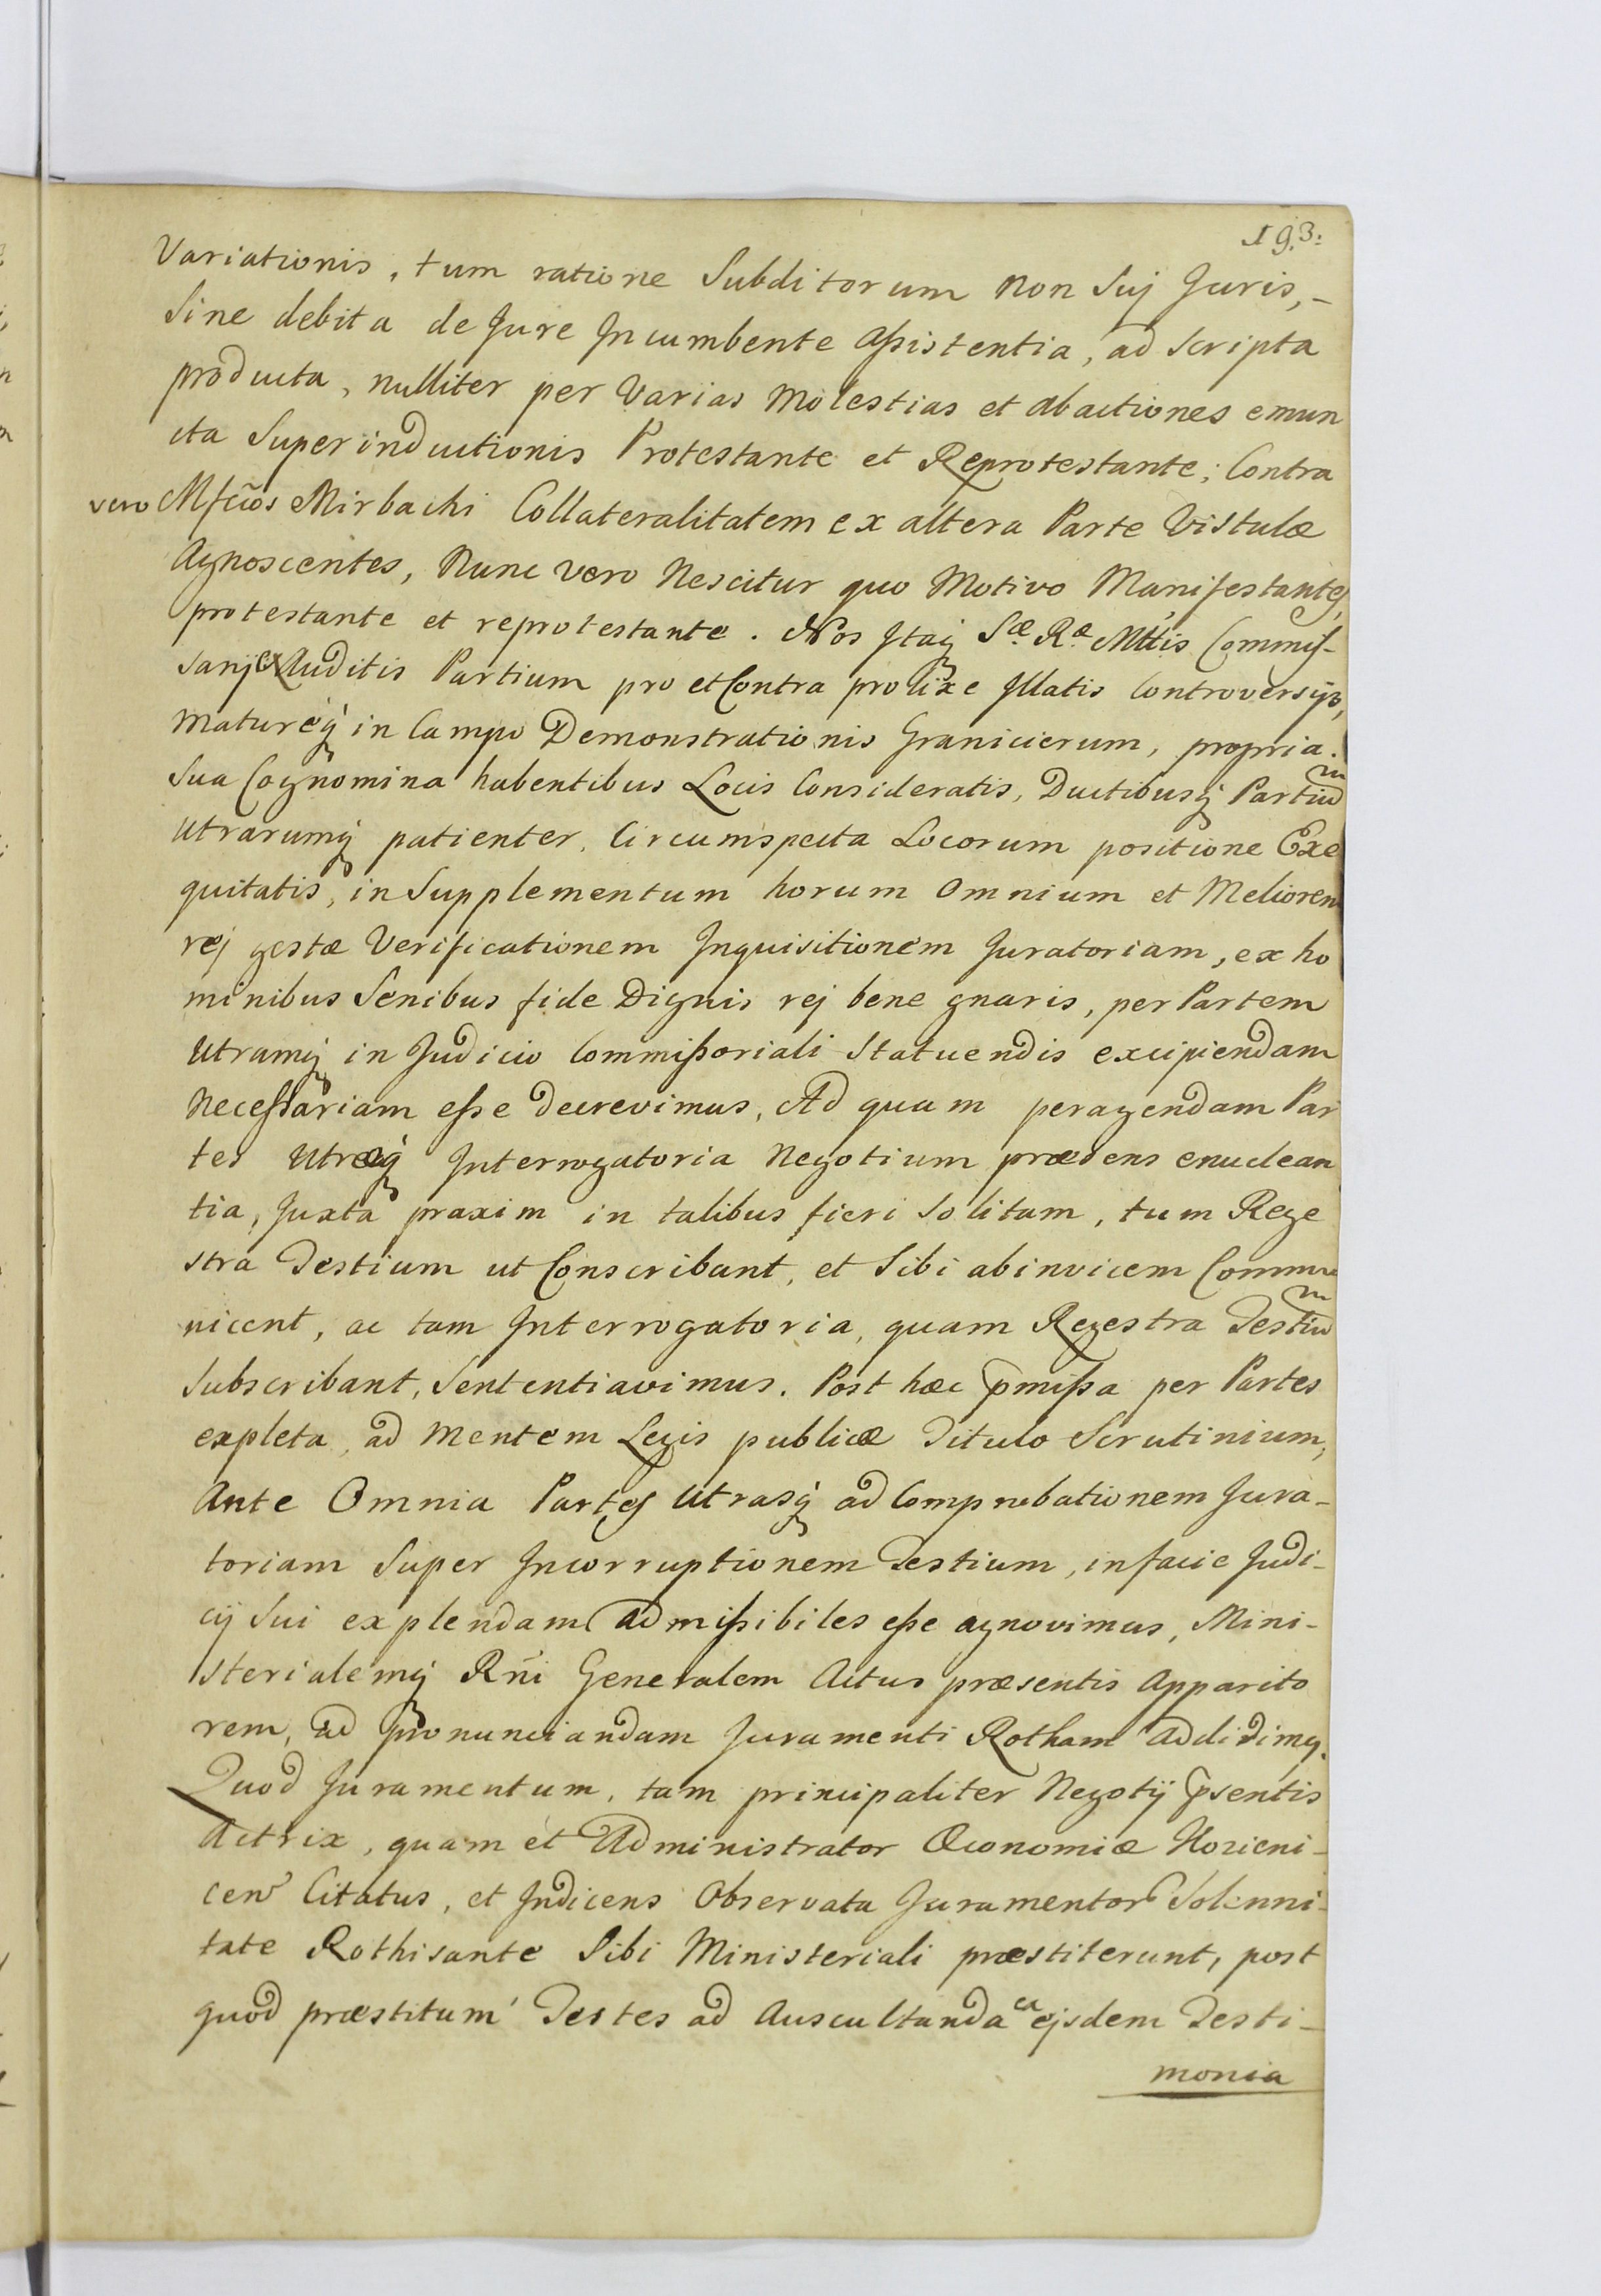 193:
Variationis, tum ratione Subditorum non Suj Juris,-
Sine debita de Jure Jncumbente Assistentia, ad Scripta
producta, nulliter per Varias Molestias et abactiones emun
cta Superinductionis Protestante et Reprotestante; Contra
vero Mfcos Mirbachi Collateralitatem ex altera Parte Vistulæ
Agnoscentes, Nunc vero Nescitur quo Motivo Manifestantes,
protestante et reprotestante. Nos Jtaq Sæ Ræ Mttis Commis-
sarij Auditis Partium pro et Contra prolixe Jllatis Controversijs,
Matureq in Campo Demonstrationis Granicierum, propria.
Sua Cognomina habentibus Locis Consideratis, Ductibusq Partium
Utrarumq patienter, Circumspecta Locorum positione Exe
quitatis, in Supplementum horum Omnium et Meliorem
rej gestæ Verificationem Jnquisitionem Juratoriam, ex ho
minibus Senibus fide Dignis rej bene gnaris, per Partem
Utramq in Judicio Commissoriali Statuendis excipiendam
Necessariam esse decrevimus, Ad quam peragendam Par
tes Utræq Jnterrogatoria Negotium præsens enuclean
tia, Juxta praxim in talibus fieri Solitam, tum Rege
stra Testium ut Conscribant, et Sibi abinvicem Commu
nicent, ac tam Jnterrogatoria, quam Regestra Testium
Subscribant, Sententiavimus. Post hæc pmissa per Partes
expleta, ad Mentem Legis publicæ Titulo Scrutinium,
Ante Omnia Partes Utrasq ad Comprobationem Jura-
toriam Super Jncorruptionem Testium, in facie Judi-
cij Sui explendam admissibiles esse agnovimus, Mini-
sterialemq Rni Generalem Actus præsentis Apparito
rem, ad pronunciandam Juramenti Rotham addidimq.
Quod Juramentum, tam principaliter Negotij psentis
Actrix, quam et Administrator Œconomiæ Kozieni-
cen Citatus, et Jndicens Observata Juramentor Solenni-
tate Rothisante Sibi Ministeriali præstiterunt, post
quod præstitum Testes ad Auscultanda ea ejsdem Testi-
monia